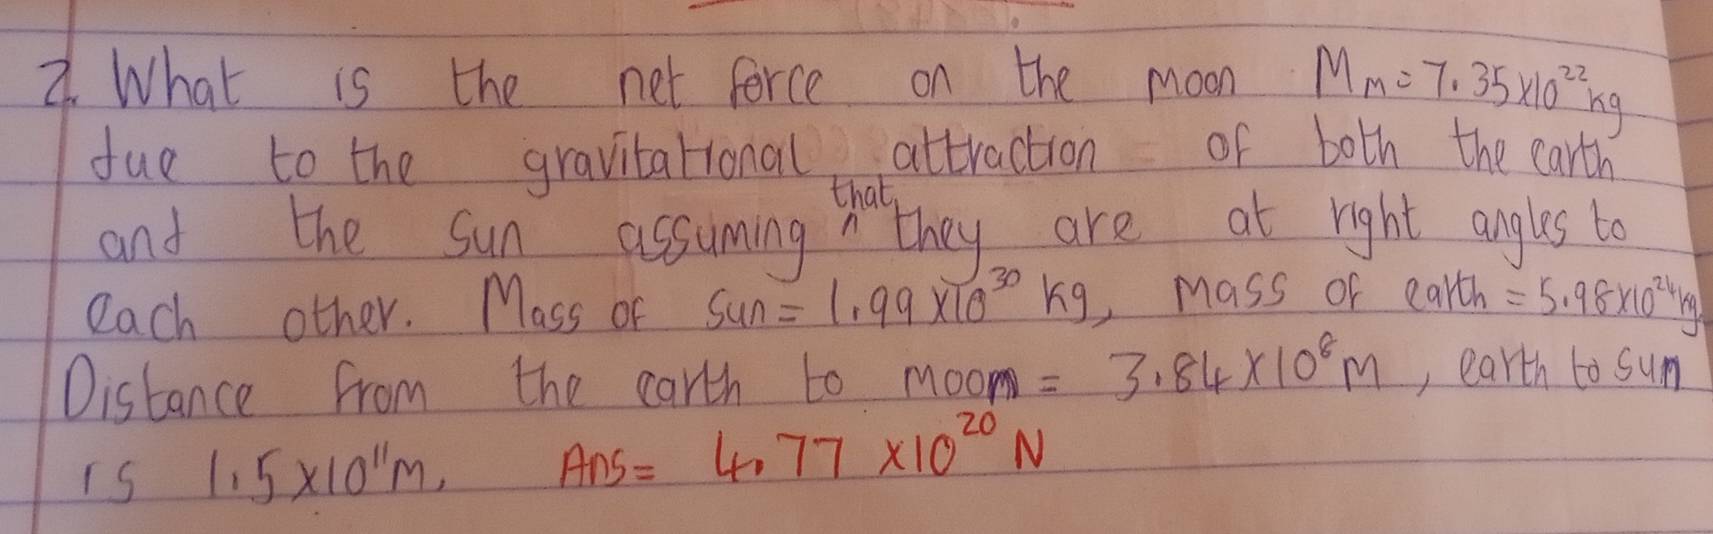 2. What is the net force on the moon Mm = 7.35x10²² kg
due to the gravitational attraction of both the earth
and the sun assuming that they are at right angles to
each other. Mass of sun = 1.99x10³⁰ kg, mass of earth = 5.98x10²⁴kg.
Distance from the earth to moom = 3.84x10⁸m, earth to sun
is 1.5x10¹¹m. Ans = 4.77 x10²⁰ N